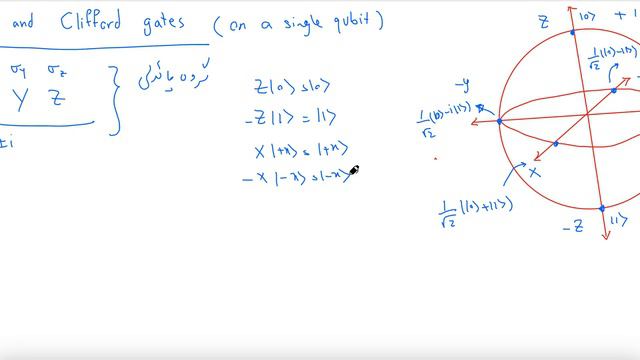 and Clifford gates (on a single qubit)
σy σz
Y Z
±i
گروه پائولی
Z|0⟩ = |0⟩
-Z|1⟩ = |1⟩
X|+x⟩ = |+x⟩
-X|-x⟩ = |-x⟩
Z |0⟩
1/√2 (|0⟩-|1⟩)
-y
1/√2 (|0⟩-i|1⟩)
X
1/√2 (|0⟩+|1⟩)
-Z |1⟩